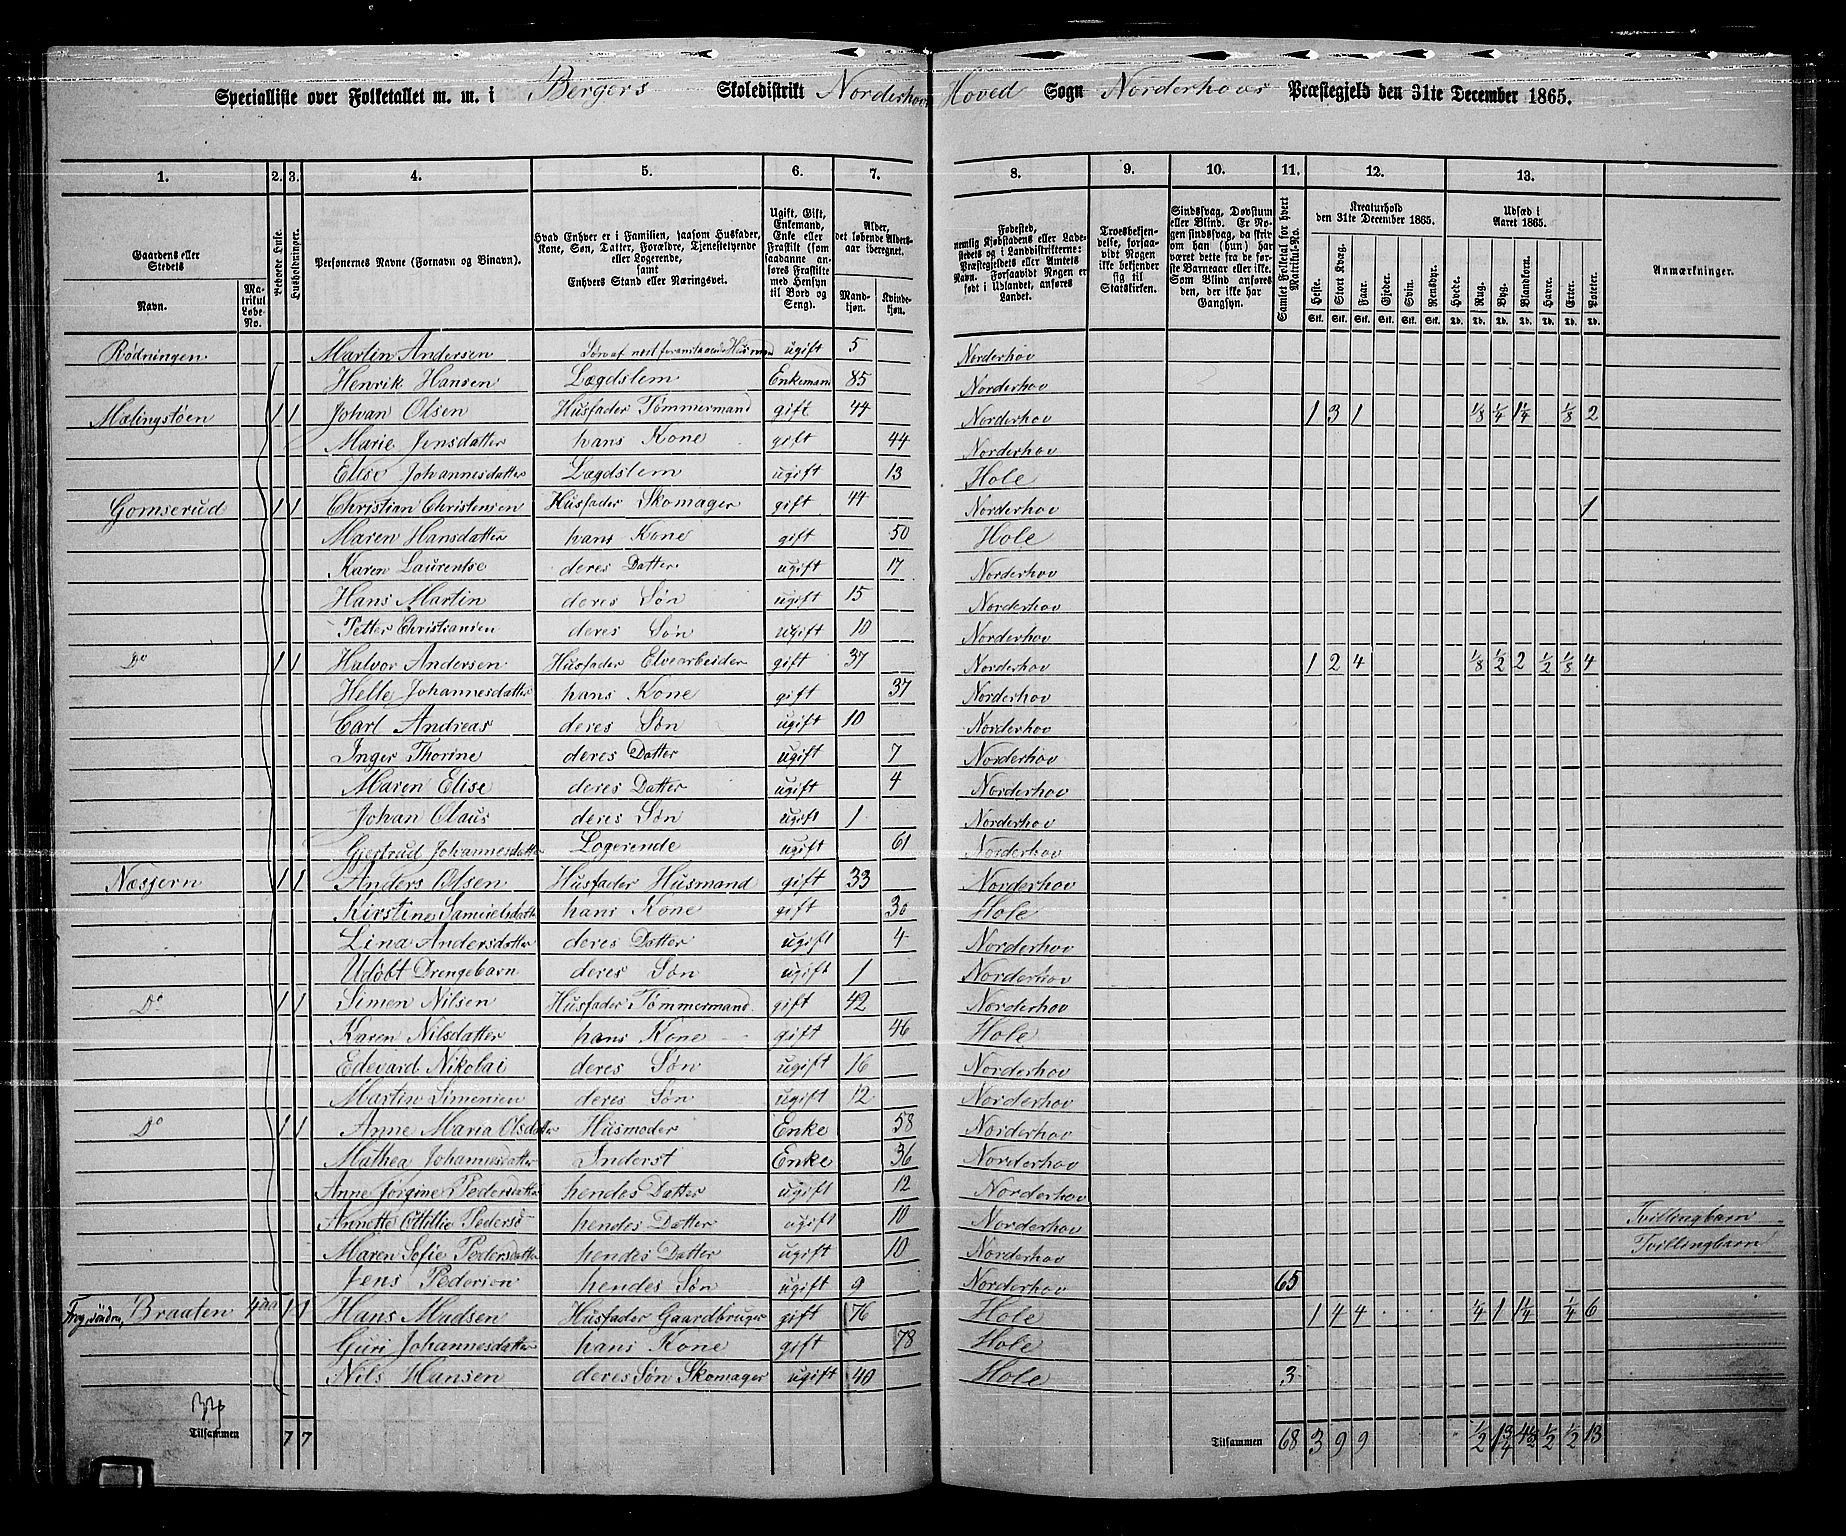 Specialliste over Folketallet m. m. i Bergers Skoledistrikt Norderhov Hoved Sogn Norderhovs Præstegjeld den 31te December 1865.
1. 2. 3. 4. 5. 6. 7. 8. 9. 10. 11. 12. 13.
Gaardens eller Stedets
Navn.
Matrikul Løbe-No.
Beboede Huse.
Husholdninger.
Personernes Navne (Fornavn og Binavn).
Hvad Enhver er i Familien, saasom Husfader, Kone, Søn, Datter, Forældre, Tjenestetydende eller Logerende, samt Enhvers Stand eller Næringsvei.
Ugift, Gift, Enkemand, Enke eller Fraskilt (som saadanne anføres Fraskilte med Hensyn til Bord og Seng).
Alder, det løbende Aldersaar iberegnet.
Mandkjøn. Kvindekjøn.
Fødested, nemlig Kjøbstadens eller Ladestedets og i Landdistrikterne: Præstegjeldets eller Amtets Navn. Forsaavidt Nogen er født i Udlandet, anføres Landet.
Troesbekjendelse, forsaavidt Nogen ikke bekjender sig til Statskirken.
Sindssvag, Døvstum eller Blind. Er Nogen sindssvag, da skrives om han (hun) har været dette fra de første Barneaar eller ikke. Som Blind anføres den, der ikke har Gangsyn.
Samlet Folketal for hvert Matrikul-No.
Kreaturhold den 31te December 1865.
Heste. Stort Kvæg. Faar. Gjeder. Svin. Rensdyr.
Udsæd i Aaret 1865.
Hvede. Rug. Byg. Blandkorn. Havre. Erter. Poteter.
Anmærkninger.
Rødningen Martin Andersen Søn af næst foranstaaende Husmand ugift 5 Norderhov
Henrik Hansen Lægdslem Enkemand 85 Norderhov
Mælingstøen 1 1 Johan Olsen Husfader Tømmermand gift 44 Norderhov 1 3 1 1/8 1/4 1 1/4 1/8 2
Marie Jensdatter hans Kone gift 44 Norderhov
Elise Johannesdatter Lægdslem ugift 13 Hole
Gomserud 1 1 Christian Christensen Husfader Skomager gift 44 Norderhov 1
Maren Hansdatter hans Kone gift 50 Hole
Karen Laurentse deres Datter ugift 17 Norderhov
Hans Martin deres Søn ugift 15 Norderhov
Petter Christiansen deres Søn ugift 10 Norderhov
Do 1 1 Halvor Andersen Husfader Elvearbeider gift 37 Norderhov 1 2 4 1/8 1/2 2 1/2 1/8 4
Helle Johannesdatter hans Kone gift 37 Norderhov
Carl Andreas deres Søn ugift 10 Norderhov
Inger Thorine deres Datter ugift 7 Norderhov
Maren Elise deres Datter ugift 4 Norderhov
Johan Olaus deres Søn ugift 1 Norderhov
Gjertrud Johannesdatter Logerende ugift 61 Norderhov
Næsjern 1 1 Anders Olsen Husfader Husmand gift 33 Norderhov
Kirstine Samuelsdatter hans Kone gift 30 Hole
Lina Andersdatter deres Datter ugift 4 Norderhov
Udøbt Drengebarn deres Søn ugift 1 Norderhov
Do 1 1 Simen Nilsen Husfader Tømmermand gift 42 Norderhov
Karen Nilsdatter hans Kone gift 46 Hole
Edevard Nikolai deres Søn ugift 16 Norderhov
Martin Simensen deres Søn ugift 12 Norderhov
Do 1 1 Anne Maria Olsdatter Husmoder Enke 58 Norderhov
Mathea Johannesdatter Inderst Enke 36 Norderhov
Anne Jørgine Pedersdatter hendes Datter ugift 12 Norderhov
Annette Ottillie Pedersd hendes Datter ugift 10 Norderhov Tvillingbarn
Maren Sofie Pedersdatter hendes Datter ugift 10 Norderhov Tvillingbarn
Jens Pedersen hendes Søn ugift 9 Norderhov 65
Braaten 1 1 Hans Madsen Husfader Gaardbruger gift 76 Hole 1 4 4 1/4 1 1 1/4 1/4 6
Guri Johannesdatter hans Kone gift 78 Hole
Nils Hansen deres Søn Skomager ugift 40 Hole 3
Tilsammen 7 7 Tilsammen 68 3 9 9 1/2 1 3/4 4 1/2 1/2 1/2 13